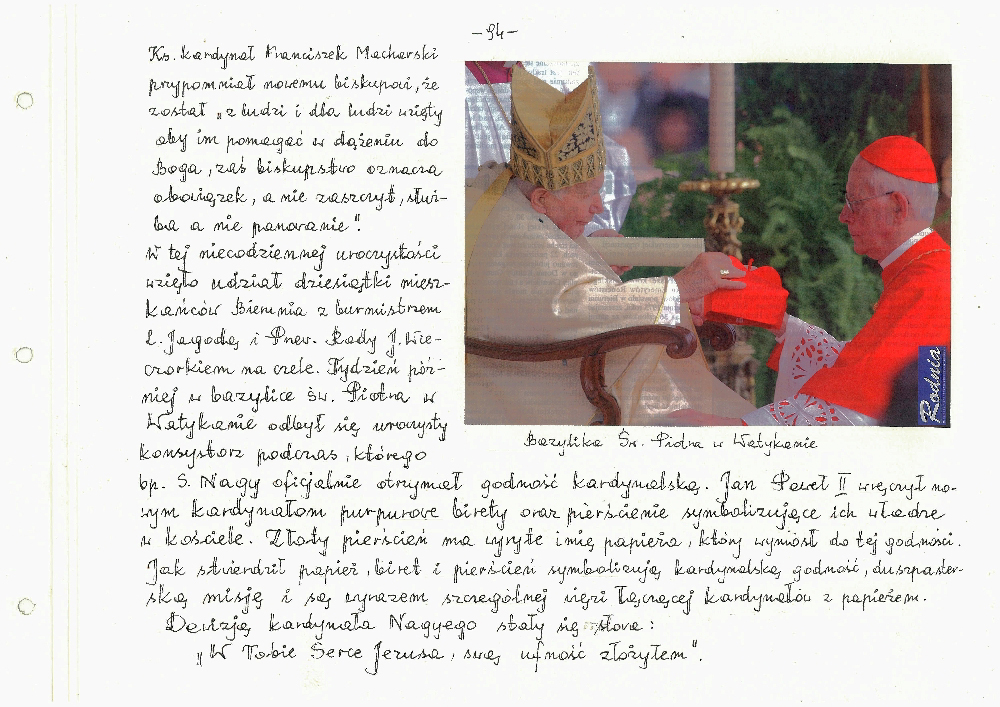 -94-
Ks. kardynał Franciszek Macharski
przypomniał nowemu biskupowi, że
został „z ludzi i dla ludzi wzięty
aby im pomagać w dążeniu do
Boga, zaś biskupstwo oznacza
obowiązek, a nie zaszczyt, służ-
ba a nie panowanie".
W tej niecodziennej uroczystości
wzięło udział dziesiątki miesz-
kańców Bierunia z burmistrzem
L. Jagodą i Przew. Rady J. Wie-
czorkiem na czele. Tydzień póź-
niej w bazylice św. Piotra w
Watykanie odbył się uroczysty
konsystorz podczas, którego
bp. S. Nagy oficjalnie otrzymał godność kardynalską. Jan Paweł II wręczył no-
wym kardynałom purpurowe birety oraz pierścienie symbolizujące ich władzę
w kościele. Złoty pierścień ma wyryte imię papieża, który wyniósł do tej godności.
Jak stwierdził papież, biret i pierścień symbolizują kardynalską godność, duszpaster-
ską misję i są wyrazem szczególnej więzi łączącej kardynałów z papieżem.
Dewizją kardynała Nagyego stały się słowa:
„W Tobie Serce Jezusa, swą ufność złożyłem".
Bazylika Św. Piotra w Watykanie
Rodnia